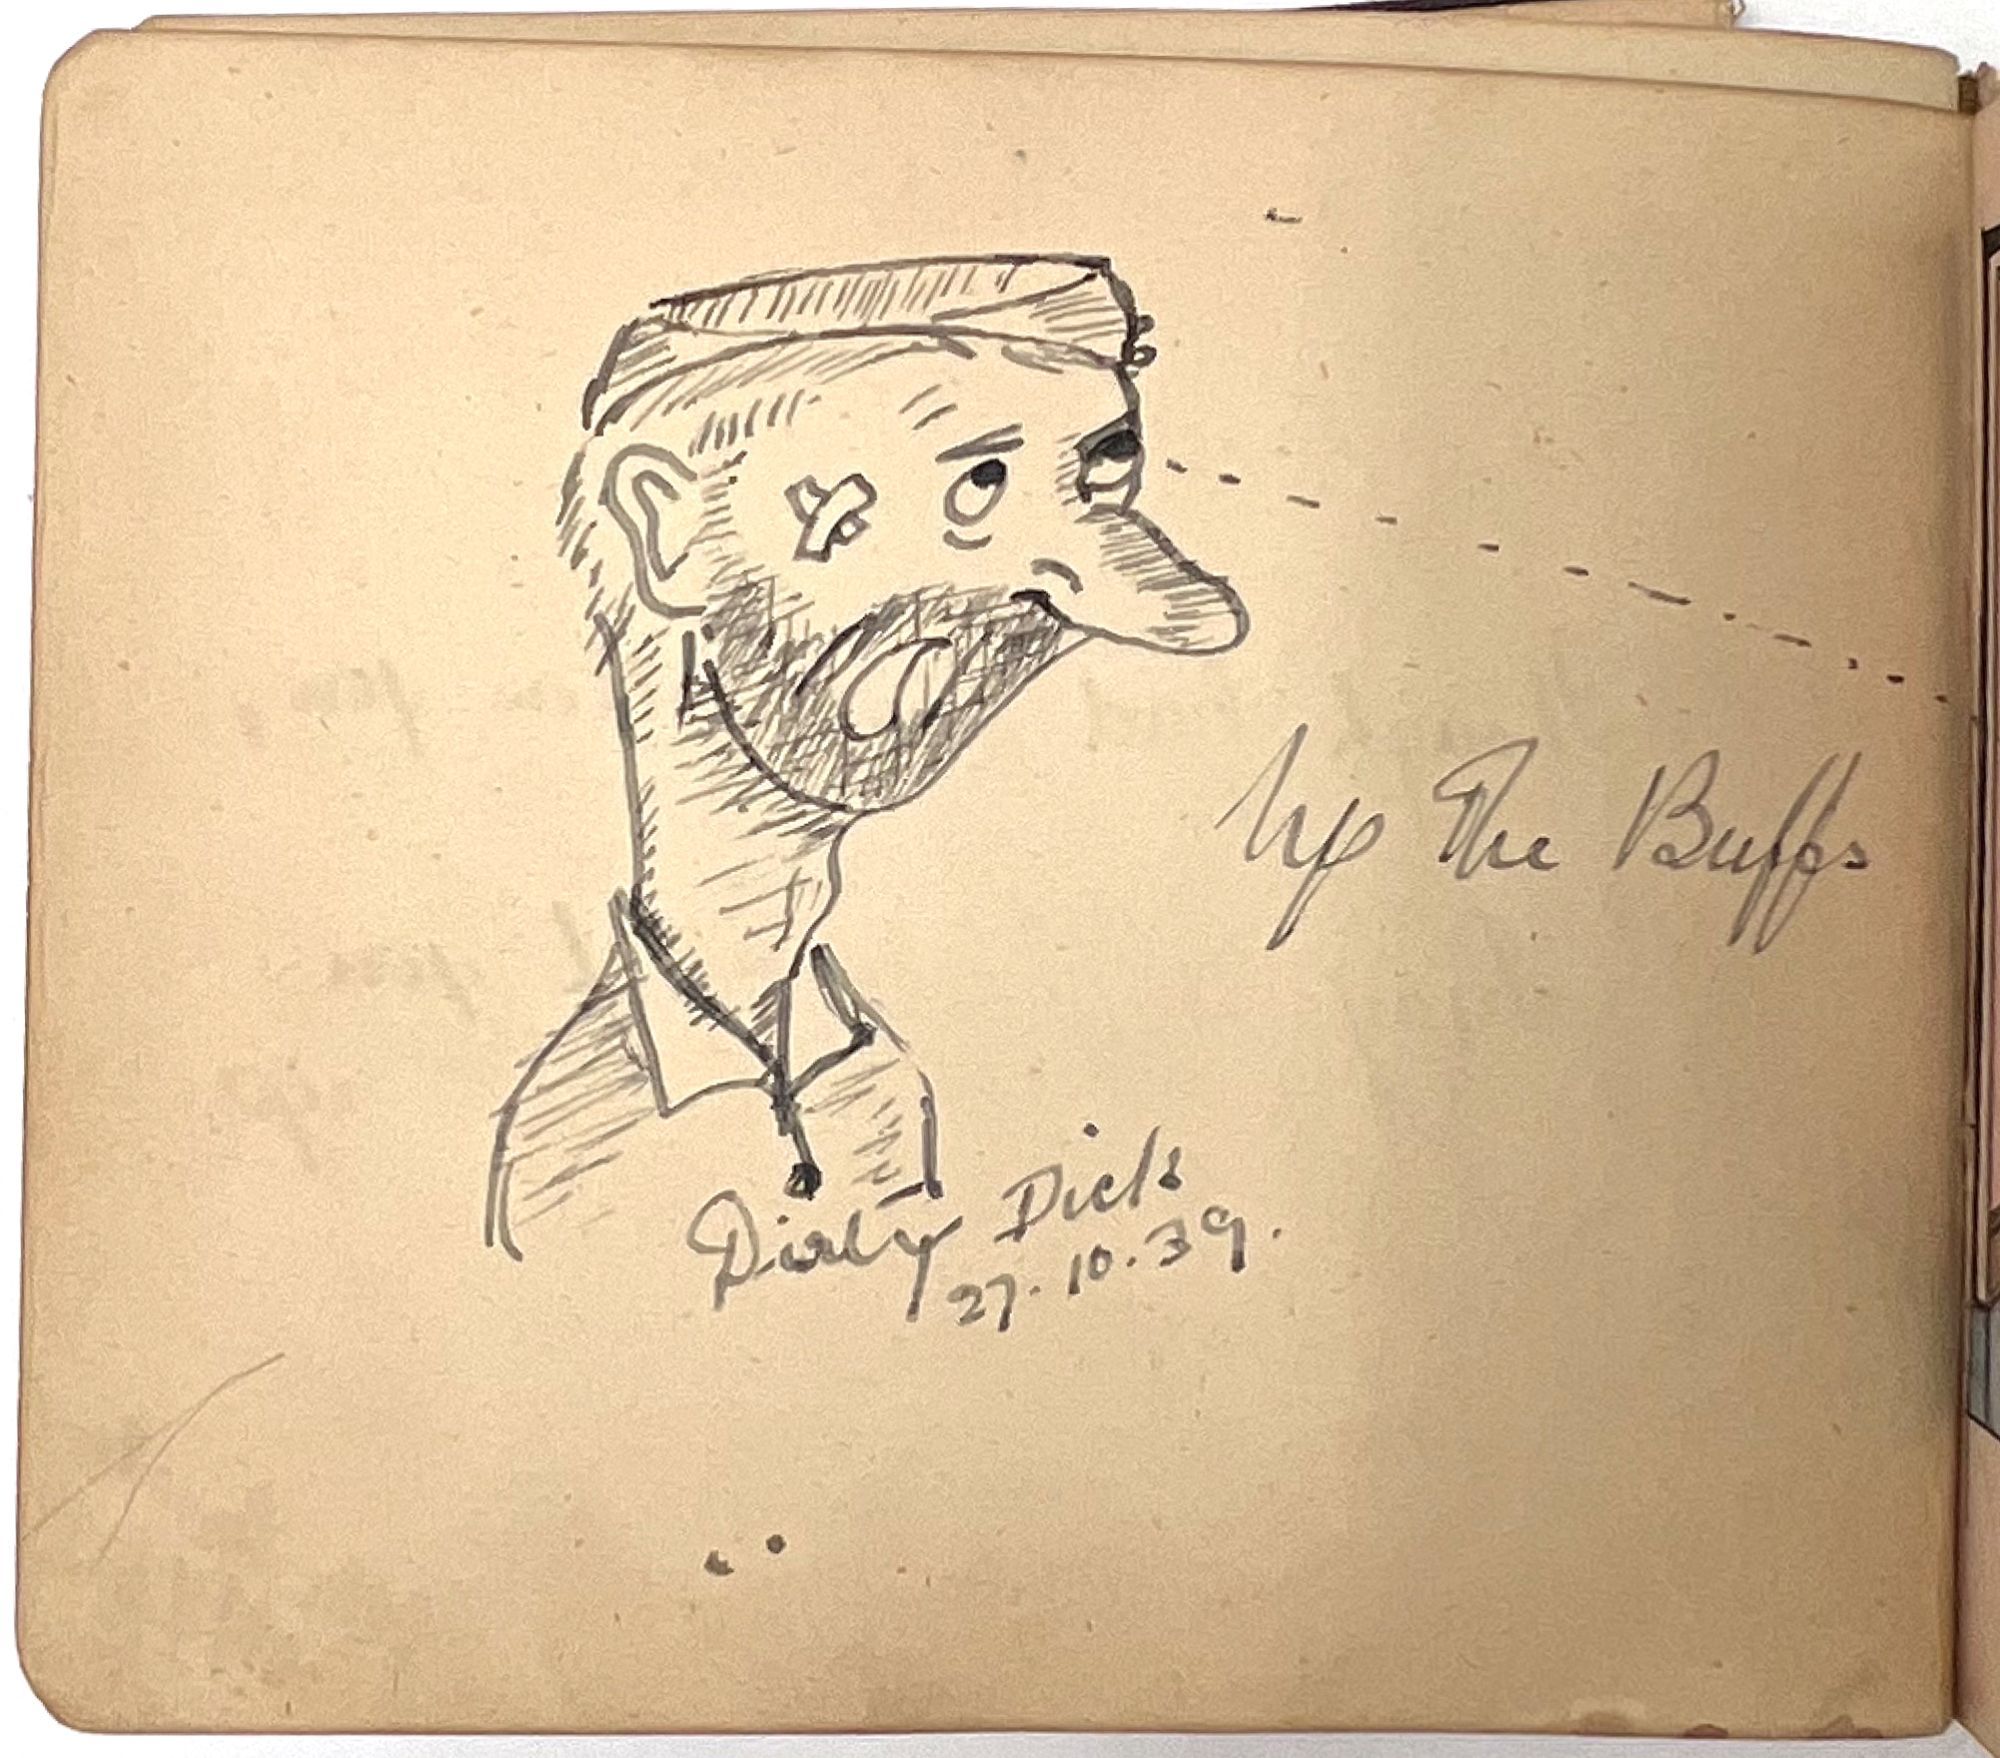 Up The Buffs
Dirty Dick
27.10.39.